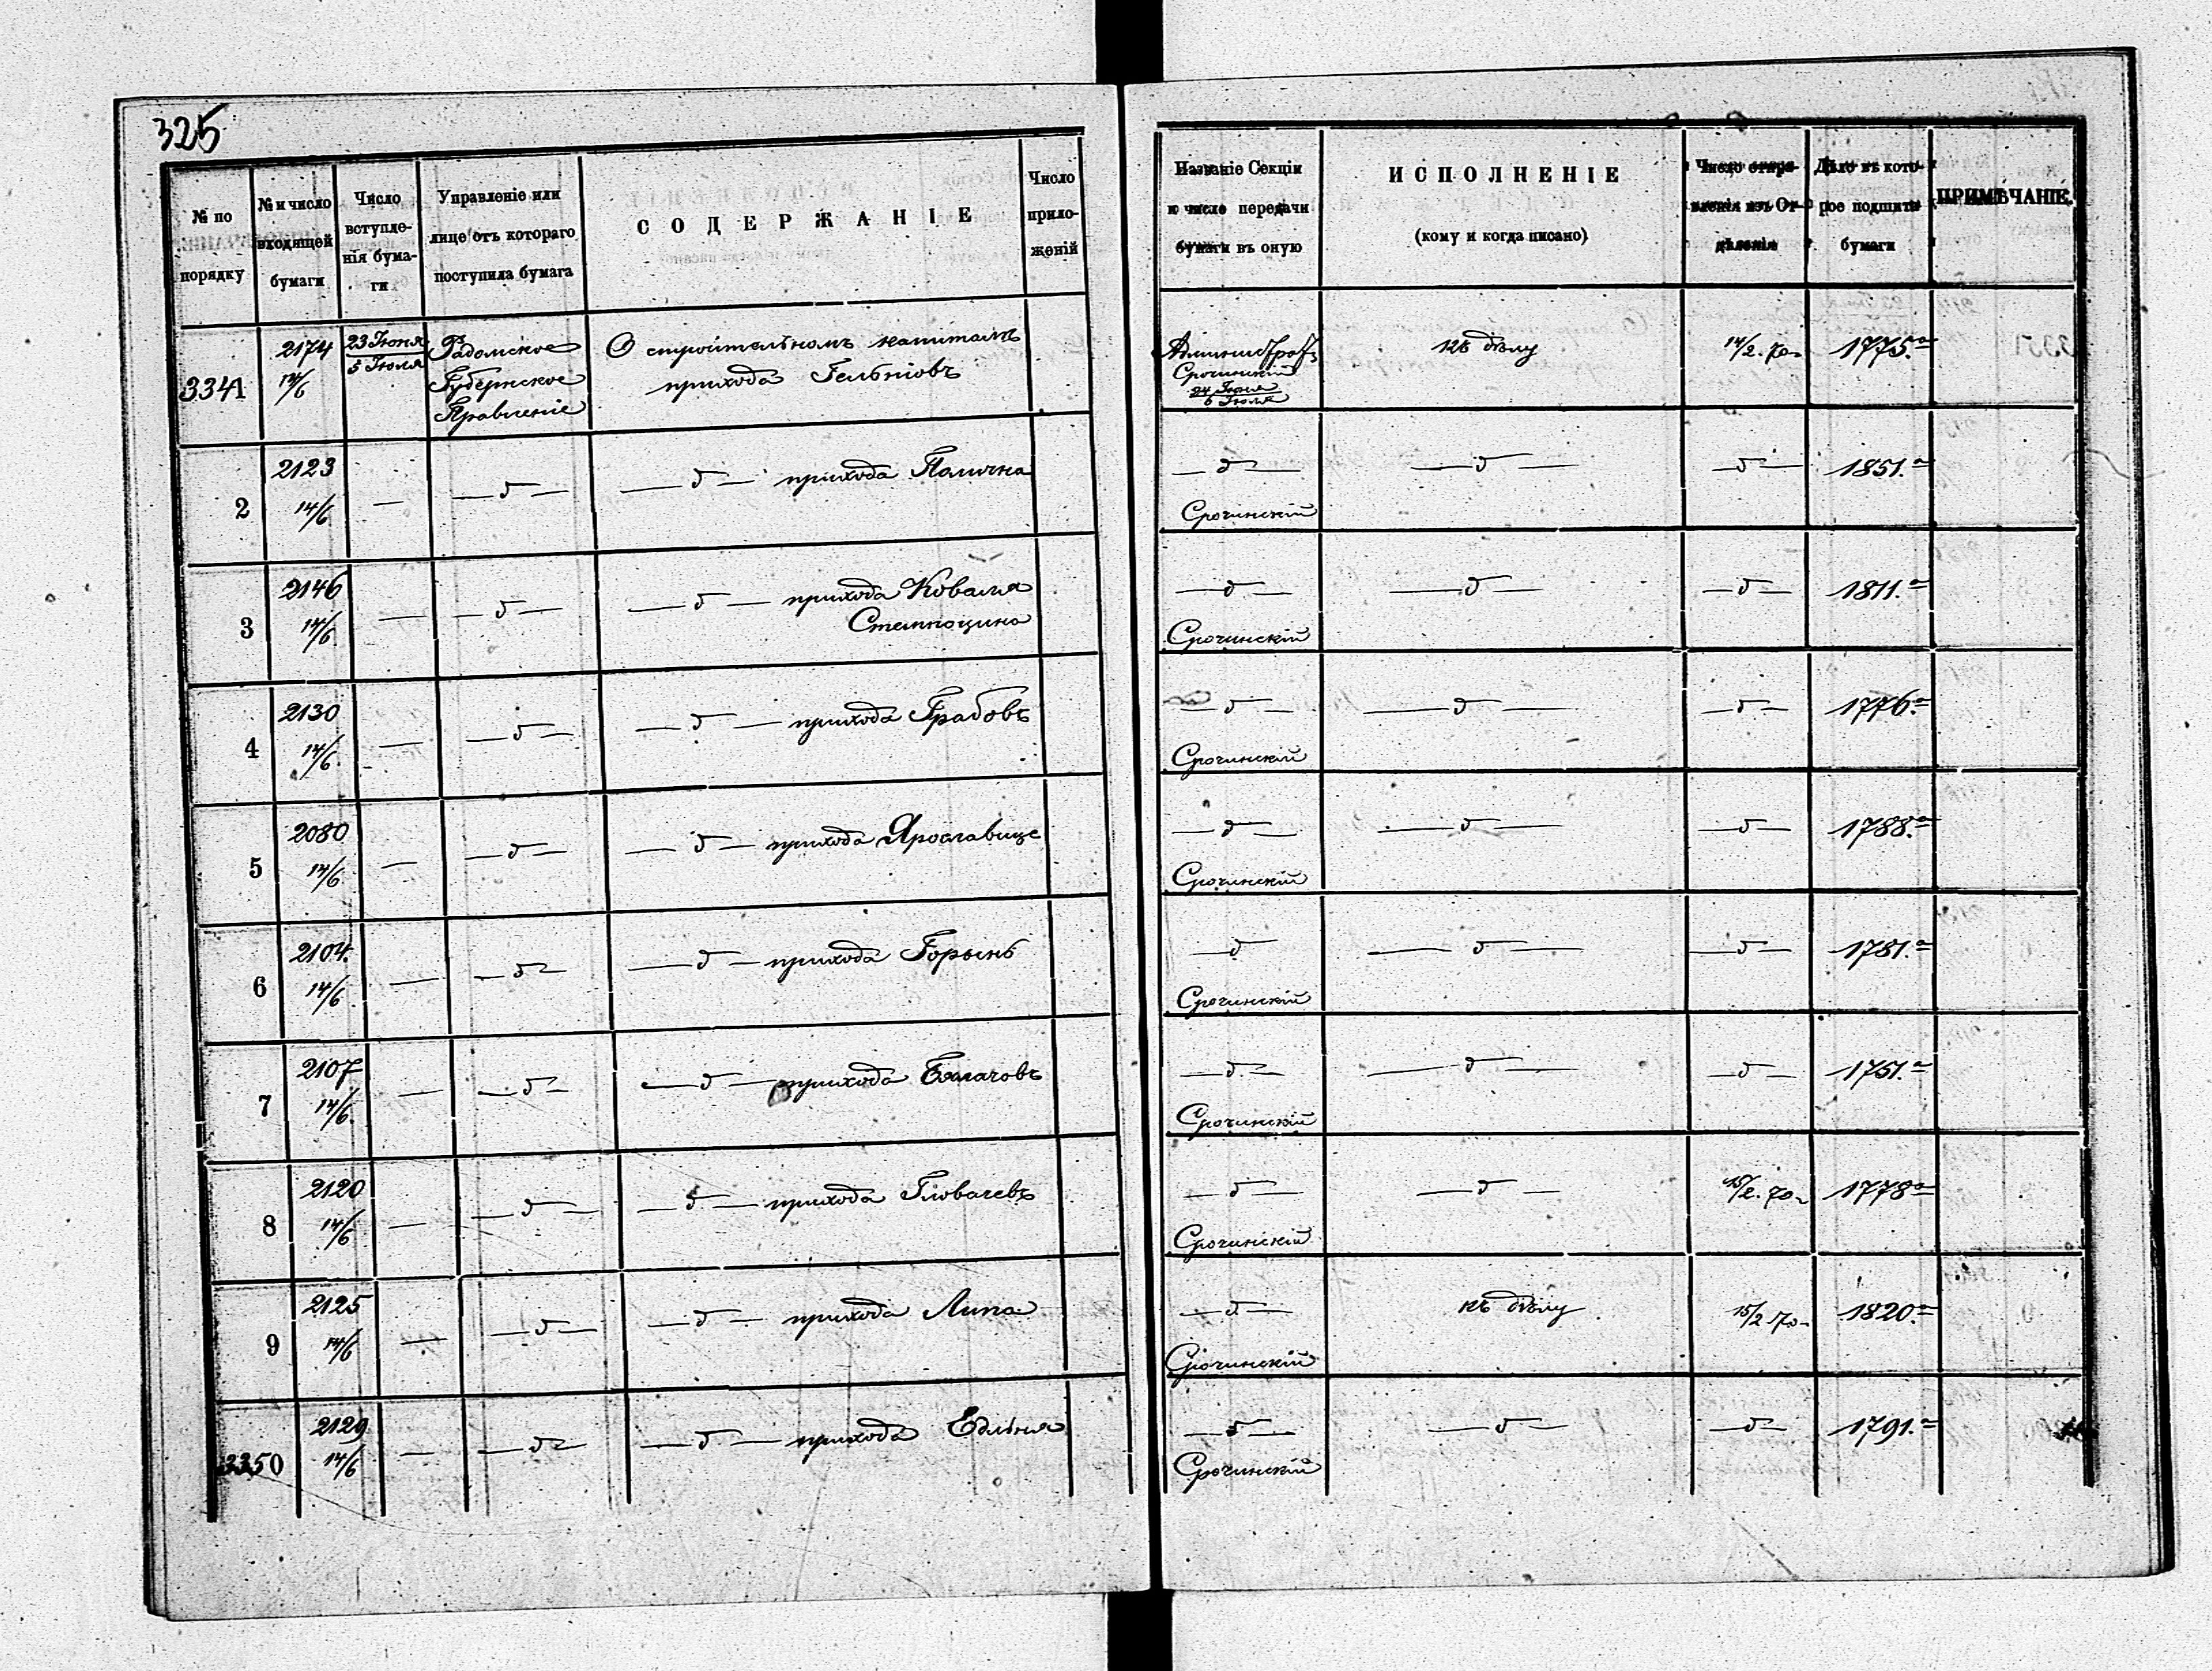 325
№ по порядку
№ и число входящей бумаги
Число вступле-нія бума-ги
Управленіе или лице отъ котораго поступила бумага
СОДЕРЖАНІЕ
Число прило-женій
Названіе Секціи и число передачи бумаги въ оную
ИСПОЛНЕНІЕ
(кому и когда писано)
Число отпра-вленія изъ От-дѣленія
Дѣло въ кото-рое подшита бумаги
ПРИМѢЧАНІЕ.
3341 2174 14/6 23 Іюня / 5 Іюля Радомское Губернское Правленіе О строительномъ капиталѣ прихода Гельніовъ Срочинскій 24 Іюня / 6 Іюля къ дѣлу 14/2 70 1775.а
2 2123 14/6 — — д — — д — прихода Полична — д — Срочинскій — д — — д — 1851.а
3 2146 14/6 — — д — — д — прихода Коваля Стемпоцина — д — Срочинскій — д — — д — 1811.а
4 2130 14/6 — — д — — д — прихода Грабовъ — д — Срочинскій — д — — д — 1776.а
5 2080 14/6 — — д — — д — прихода Ярославице — д — Срочинскій — д — — д — 1788.а
6 2104. 14/6 — — д — — д — прихода Горынь — д Срочинскій — д — — д — 1781.а
7 2107 14/6 — — д — — д — прихода — д — Срочинскій — д — — д — 1751.а
8 2120 14/6 — — д — — д — прихода Гловачевъ — д — Срочинскій — д — 15/2. 70 1778а
9 2125 14/6 — — д — — д — прихода Липа — д — Срочинскій къ дѣлу 15/2 70 1820.а
3350 2129 14/6 — — д — — д — прихода Едльня — д — Срочинскій — д — — д — 1791.а